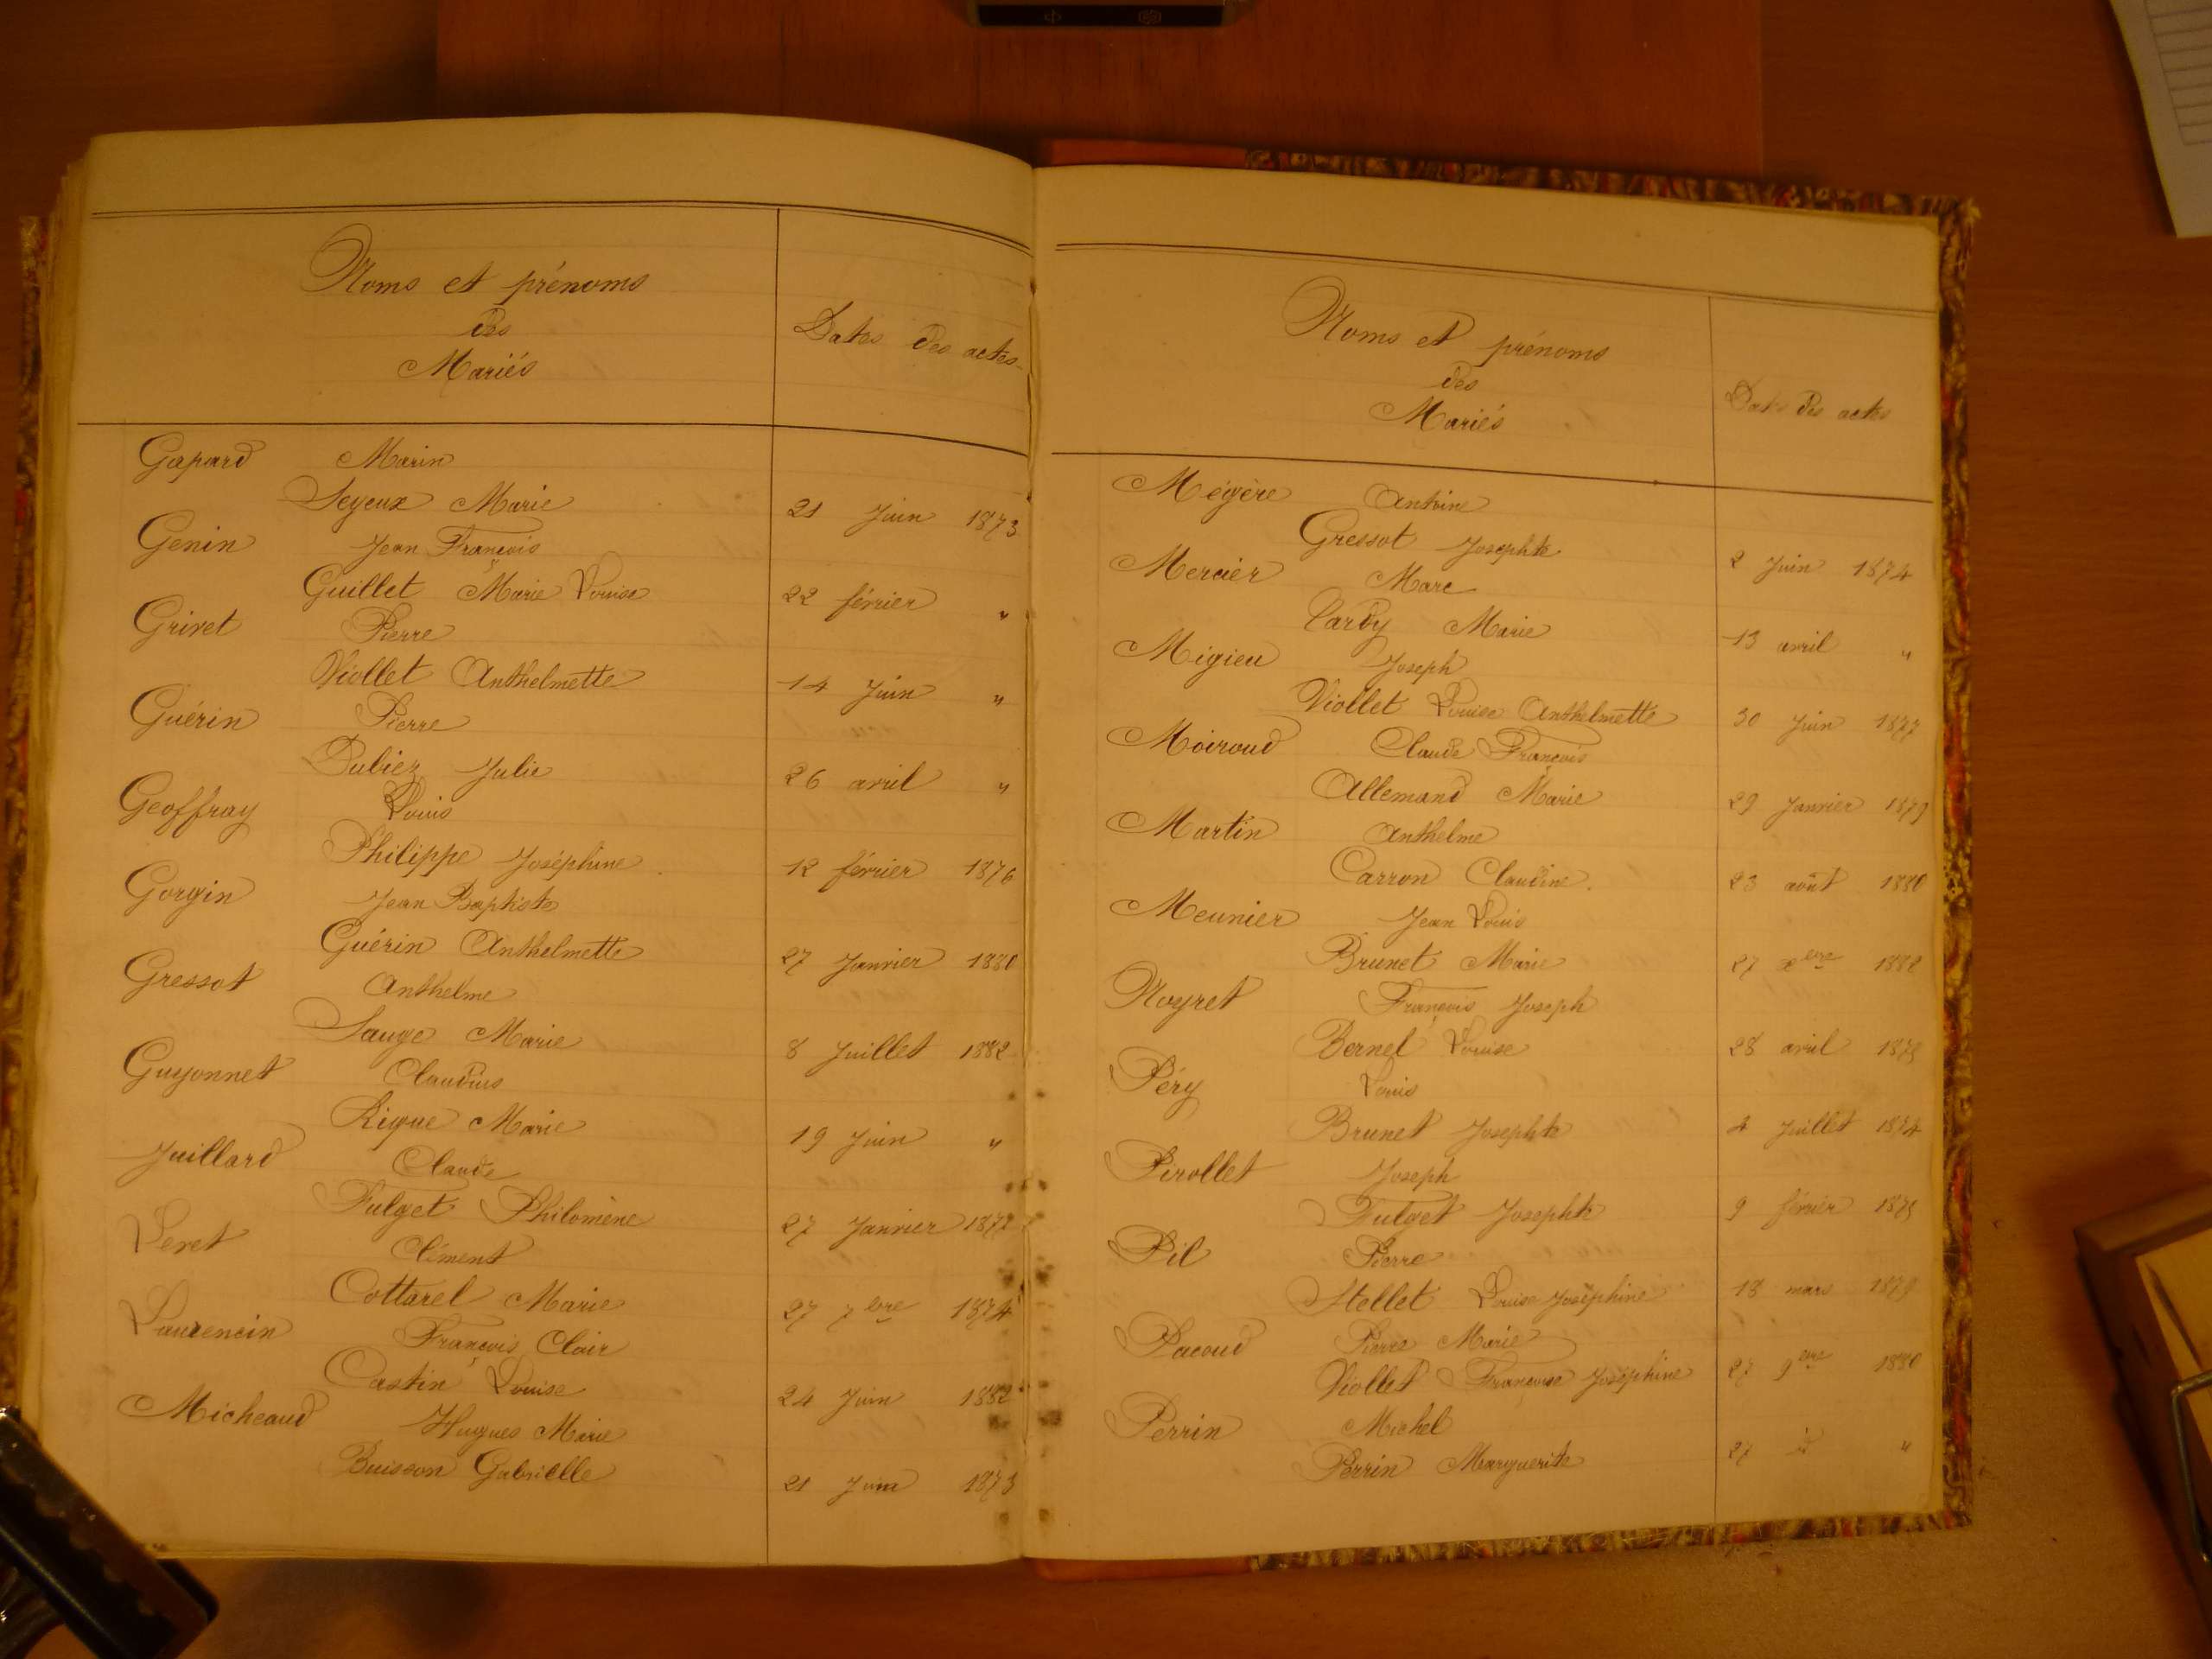 Noms et prénoms
des
Mariés
Dates des actes
Gapard Marin
Seyeux Marie 21 Juin 1873
Genin Jean François
Guillet Marie Louise 22 février "
Grivet Pierre
Viollet Anthelmette 14 Juin "
Guérin Pierre
Dubiez Julie 26 avril "
Geoffray Louis
Philippe Joséphine 12 février 1876
Gorgin Jean Baptiste
Guérin Anthelmette 27 Janvier 1880
Gressot Anthelme
Sauge Marie 8 Juillet 1882
Guyonnet Claudius
Rigue Marie 19 Juin "
Juillard Claude
Fulget Philomène 27 Janvier 1877
Leret Clément
Cottarel Marie 27 7bre 1874
Laurencin François Clair
Castin Louise 24 Juin 1882
Micheaud Hugues Marie
Buisson Gabrielle 21 Juin 1873
Noms et prénoms
des
Mariés
Dates des actes
Mégère Antoine
Gressot Josephte 2 Juin 1874
Mercier Marc
Cardy Marie 13 avril "
Migieu Joseph
Viollet Louise Anthelmette 30 Juin 1877
Moiroud Claude François
Allemand Marie 29 Janvier 1879
Martin Anthelme
Carron Claudine 23 août 1880
Meunier Jean Louis
Brunet Marie 27 xbre 1882
Noyret François Joseph
Bernel Louise 28 avril 1875
Péry Louis
Brunet Josephte 4 Juillet 1874
Pirollet Joseph
Fulget Josephte 9 février 1875
Pil Pierre
Stellet Louise Joséphine 18 mars 1879
Pacoud Pierre Marie
Viollet Françoise Joséphine 27 9bre 1880
Perrin Michel
Perrin Marguerite 27 id "